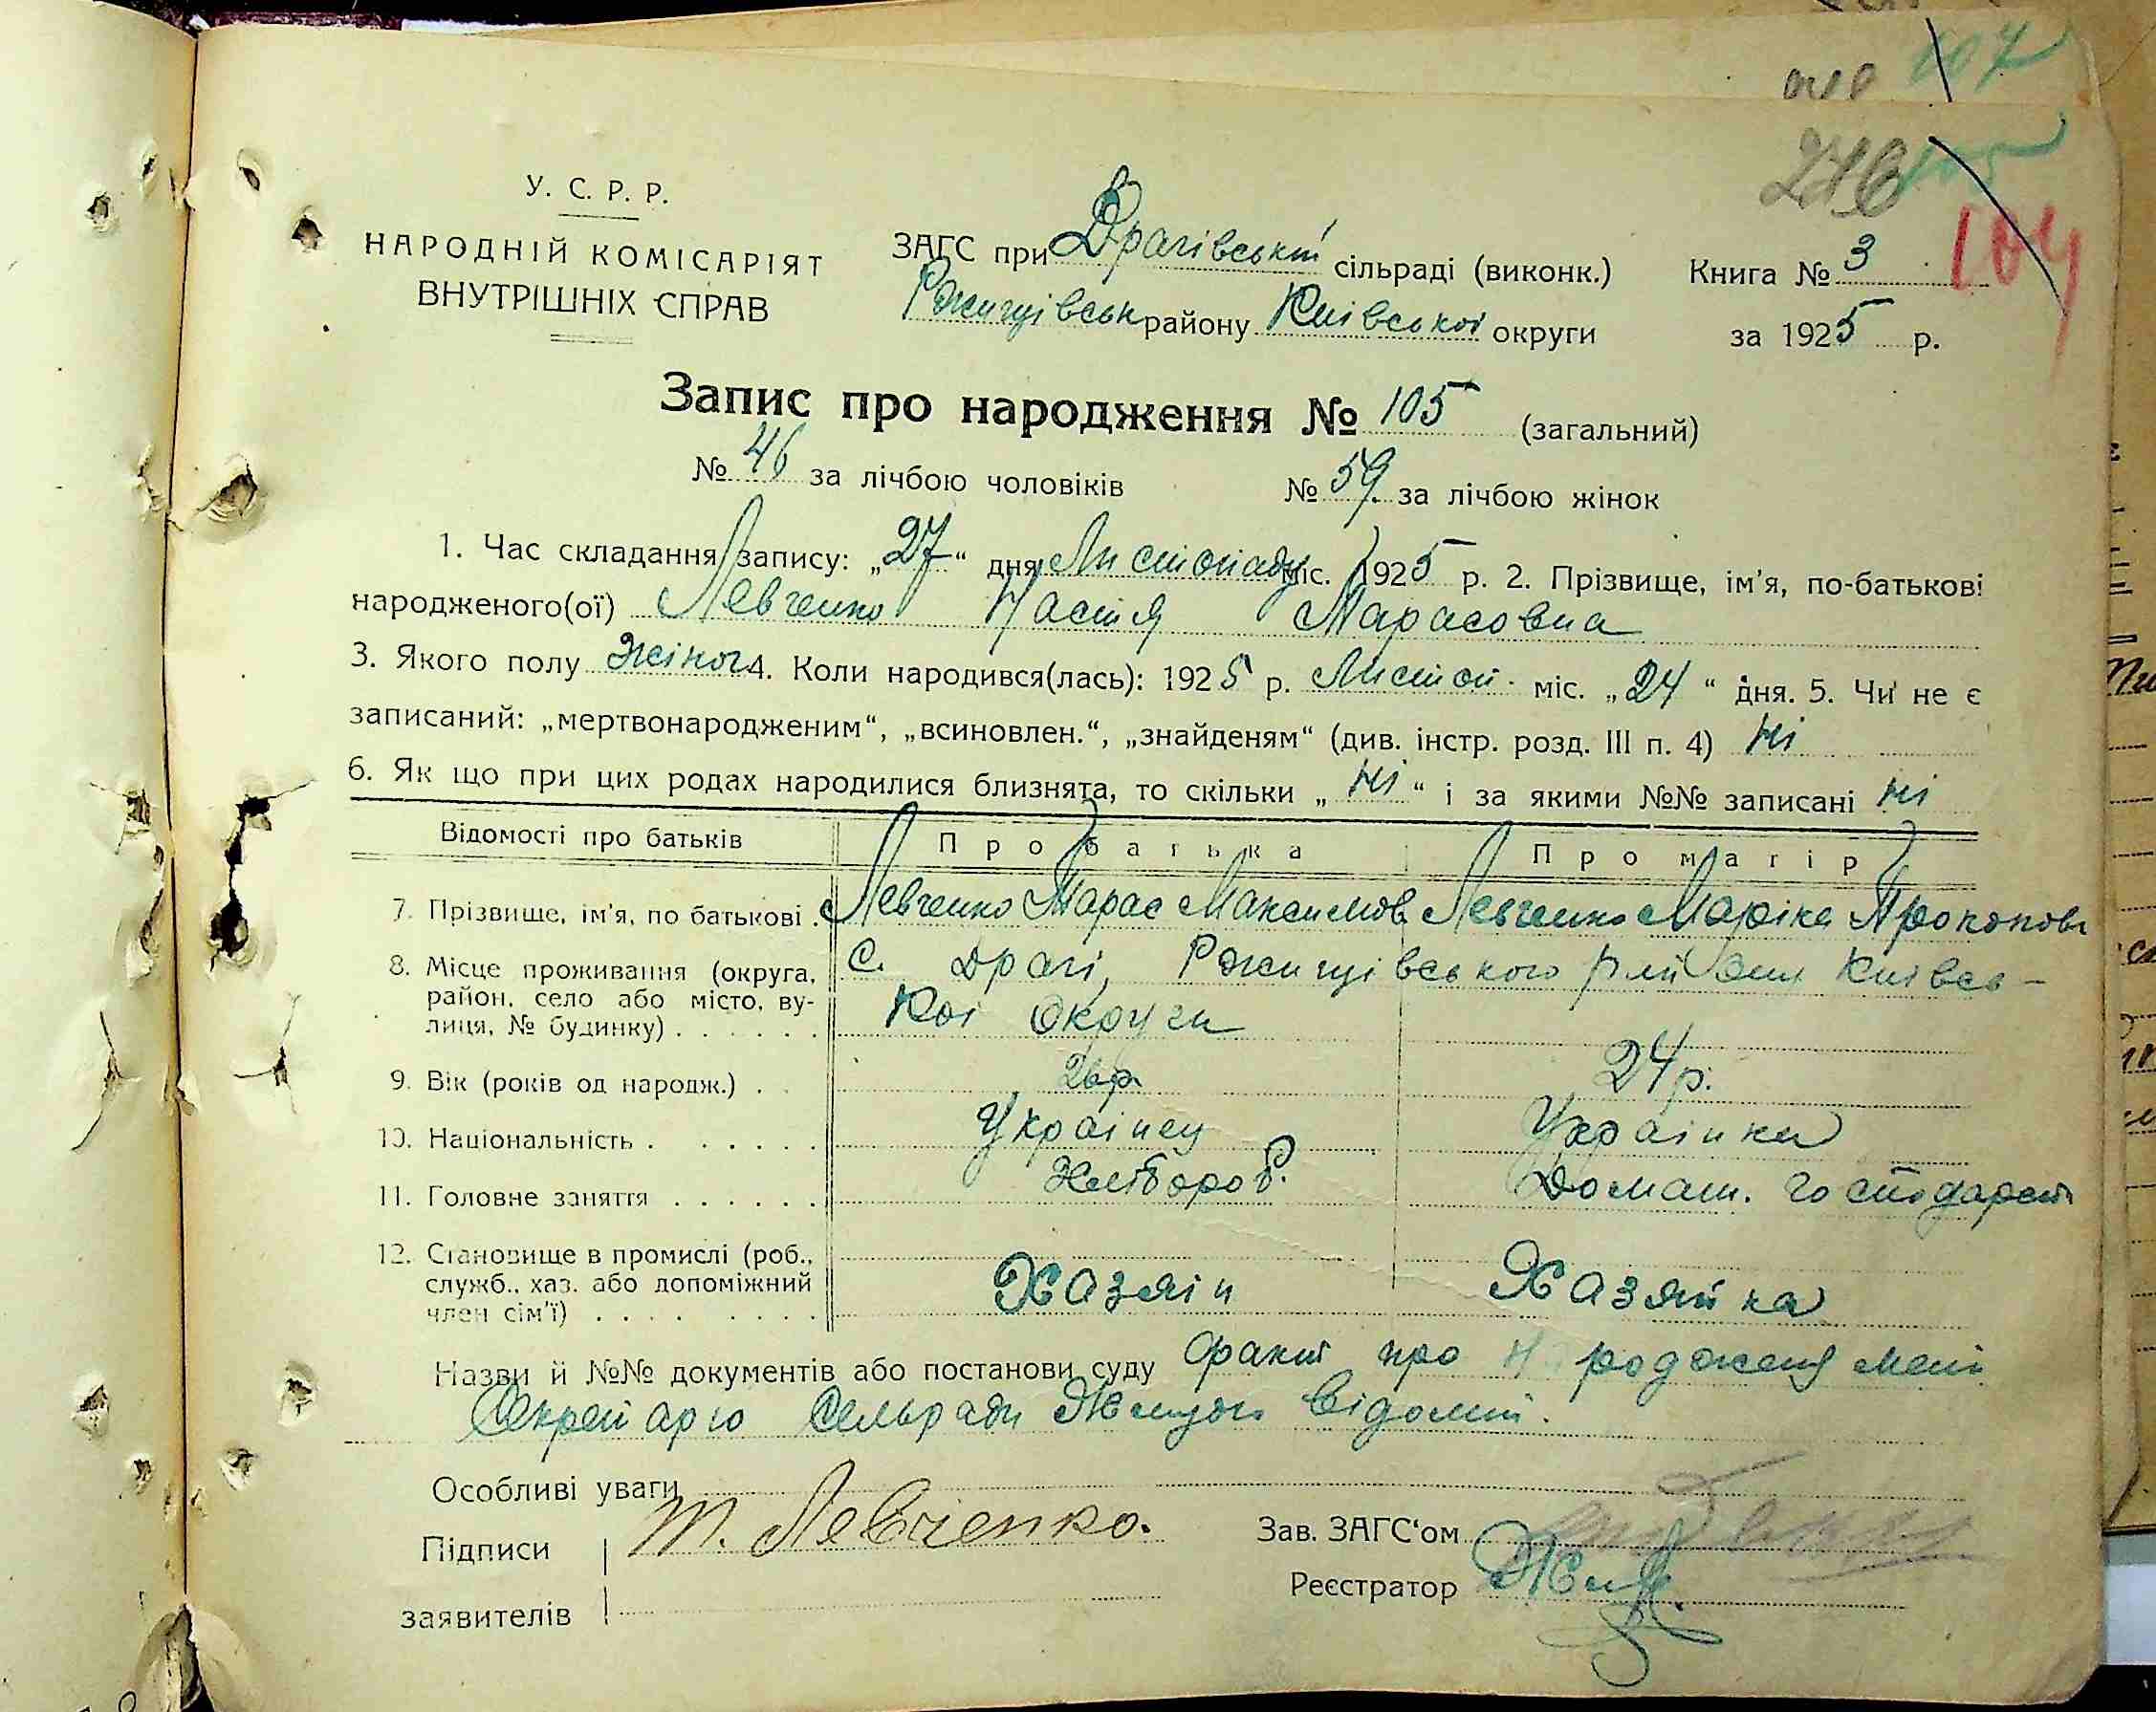 107
246 105
104
У. С. Р. Р.
НАРОДНІЙ КОМІСАРІЯТ
ВНУТРІШНІХ СПРАВ
ЗАГС при Драгівській сільраді (виконк.)
Ржищівськ району Київської округи
Книга № 3
за 1925 р.
Запис про народження № 105 (загальний)
№ 46 за лічбою чоловіків № 59 за лічбою жінок
1. Час складання запису: „27“ дня Листопаду міс. 1925 р. 2. Прізвище, ім'я, по-батькові
народженого(ої) Левченко Настя Тарасовна
3. Якого полу Жіноч 4. Коли народився(лась): 1925 р. Листоп. міс. „24“ дня. 5. Чи не є
записаний: „мертвонародженим“, „всиновлен.“, „знайденям“ (див. інстр. розд. III п. 4) Ні
6. Як що при цих родах народилися близнята, то скільки „Ні“ і за якими №№ записані Ні
Відомості про батьків Про батька Про матір
7. Прізвище, ім'я, по батькові . Левченко Тарас Максимов Левченко Маріка Прокопов
8. Місце проживання (округа, С. Драчі, Ржищівського району Київсь-
район, село або місто, ву- кої Округи
лиця, № будинку) . . . . . .
9. Вік (років од народж.) . . 26 р. 24 р.
10. Національність . . . . . . Українец Українка
11. Головне заняття . . . . . . Хлібороб. Домаш. господарст
12. Становище в промислі (роб.,
служб., хаз. або допоміжний Хазяін Хазяйка
член сім'ї) . . . . . . . .
Назви й №№ документів або постанови суду Факт про народженя мені
Секретарю Сельради відомий.
Особливі уваги
Підписи Т. Левченко.
заявителів
Зав. ЗАГС'ом
Реєстратор